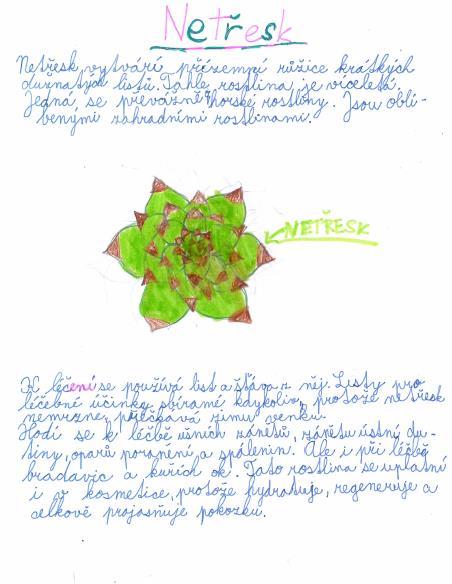 Netřesk
Netřesk vytváří přízemní růžice krátkých
dužnatých listů. Tahle rostlina je víceletá.
Jedná, se převážně o horské rostliny. Jsou oblí-
benými zahradními rostlinami.
NETŘESK
K léčení se používá list a šťáva z něj. Listy pro
léčebné účinky sbíramé kdykoliv, protože netřesk
nemrzne, přečkává zimu venku.
Hodí se k léčbě ušních zánětů, zánětu ústní du-
tiny, oparů poranění, a spálenin. Ale i při léčbě
bradavic a kuřích ok. Tato rostlina se uplatní
i v kosmetice, protože hydratuje, regeneruje a
celkově projasňuje pokožku.